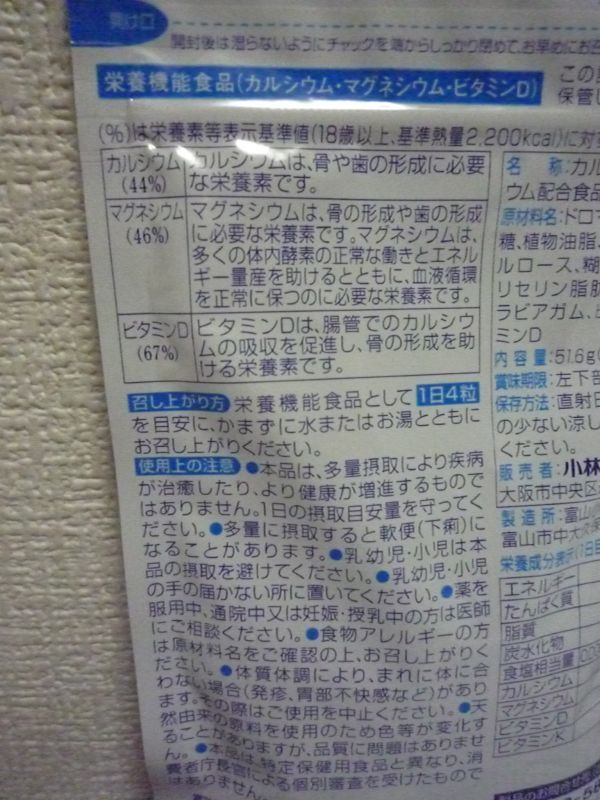 開け口
開封後は湿らないようにチャックを端からしっかり閉めて、お早めにお召
栄養機能食品(カルシウム・マグネシウム・ビタミンD)
この
保管し
(%)は栄養素等表示基準値(18歳以上、基準熱量2,200kcal)に対す
カルシウム
(44%)
カルシウムは、骨や歯の形成に必要
な栄養素です。
マグネシウム
(46%)
マグネシウムは、骨の形成や歯の形成
に必要な栄養素です。マグネシウムは、
多くの体内酵素の正常な働きとエネル
ギー量産を助けるとともに、血液循環
を正常に保つのに必要な栄養素です。
ビタミンD
(67%)
ビタミンDは、腸管でのカルシウ
ムの吸収を促進し、骨の形成を助
ける栄養素です。
召し上がり方 栄養機能食品として 1日4粒
を目安に、かまずに水またはお湯とともに
お召し上がりください。
使用上の注意 ●本品は、多量摂取により疾病
が治癒したり、より健康が増進するもので
はありません。1日の摂取目安量を守ってく
ださい。●多量に摂取すると軟便(下痢)に
なることがあります。●乳幼児・小児は本
品の摂取を避けてください。●乳幼児・小児
の手の届かない所に置いてください。●薬を
服用中、通院中又は妊娠・授乳中の方は医師
にご相談ください。●食物アレルギーの方
は原材料名をご確認の上、お召し上がりく
ださい。●体質体調により、まれに体に合
わない場合(発疹、胃部不快感など)があり
ます。その際はご使用を中止ください。●天
然由来の原料を使用のため色等が変化す
ることがありますが、品質に問題はありませ
ん。●本品は、特定保健用食品と異なり、消
費者庁長官による個別審査を受けたもので
はありません。
名 称:カル
ウム配合食品
原材料名:ドロマ
糖、植物油脂、
ルロース、糊
リセリン脂肪
ラビアガム、ビ
ミンD
内容量:51.6g(
賞味期限:左下部
保存方法:直射日
の少ない涼し
ください。
販売者:小林
大阪市中央区
製造所:富山
富山市中大
栄養成分表示(1日目
エネルギー
たんぱく質
脂質
炭水化物
食塩相当量
カルシウム
マグネシウム
ビタミンD
ビタミンK
製品のお問合せ